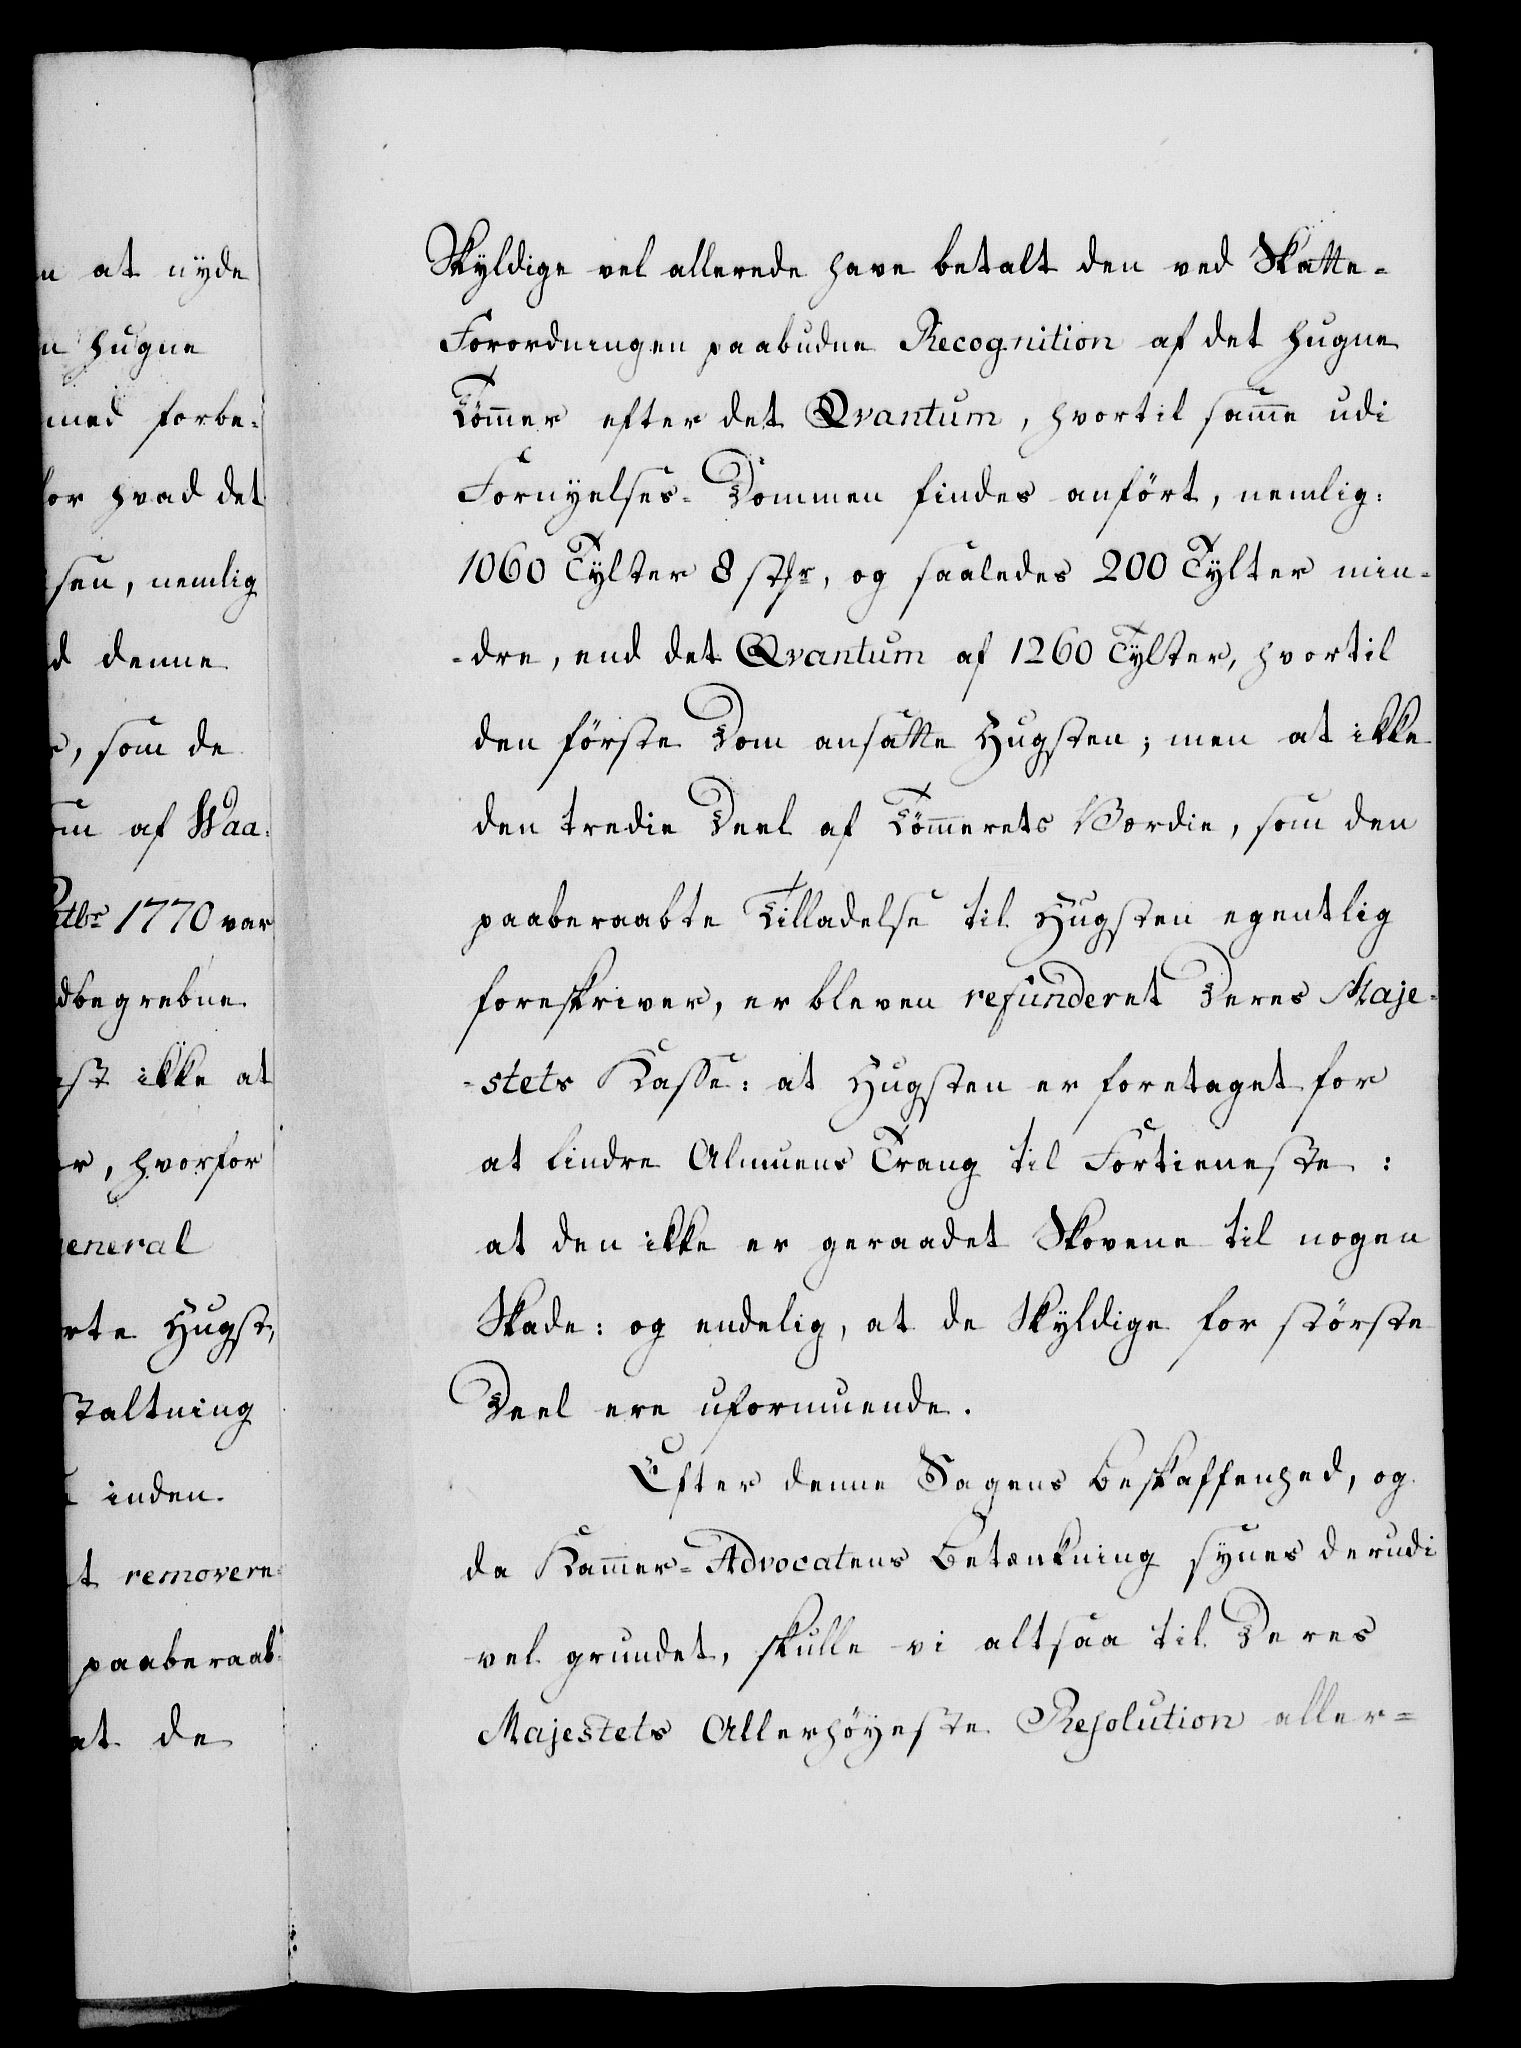 n at nyde
n hugne
med forbe-
for hvad det
sen, nemlig
d denne
r, som de
om af Waa-
Octbr 1770 var
dbegrebne
est ikke at
er, hvorfor
general
rte Hugst,
staltning
t inden
t removere
paaberaab-
at de
Skyldige vel allerede have betalt den ved Skatte-
Forordningen paabudne Recognition af det hugne
Tömmer efter det Qvantum, hvortil samme udi
Fornyelses-Dommen findes anfört, nemlig:
1060 Tylter 8 stkr, og saaledes 200 Tylter min-
-dre, end det Qvantum af 1260 Tylter, hvortil
den förste Dom ansatte Hugsten; men at ikke
den tredie Deel af Tömmerets Værdie, som den
paaberaabte Tilladelse til Hugsten egentlig
foreskriver, er bleven refunderet Deres Maje-
-stets Kasse: at Hugsten er foretaget for
at lindre Almuens Trang til Fortieneste:
at den ikke er geraadet Skovene til nogen
Skade: og endelig, at de Skyldige for störste
Deel ere uformuende.
Efter denne Sagens Beskaffenhed, og
da Kammer-Advocatens Betænkning synes derudi
vel grundet, skulle vi altsaa til Deres
Majestets Allerhöyeste Resolution aller-